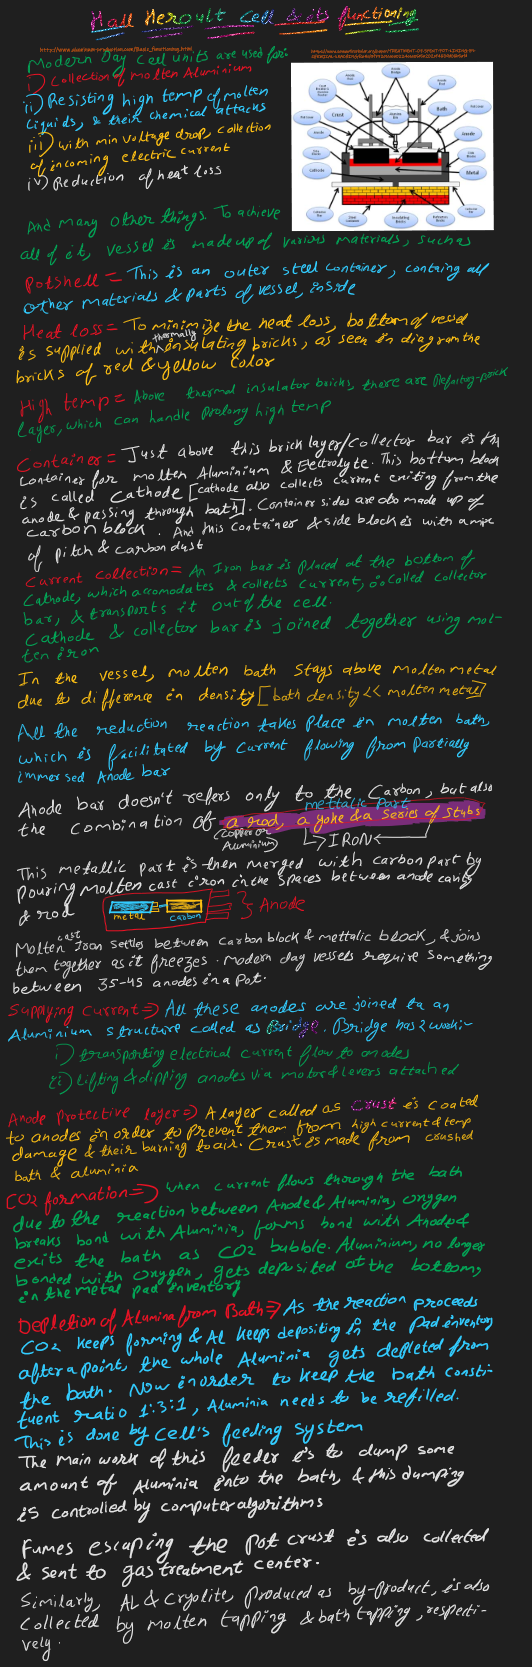 Hall Heroult Cell & its functioning
Modern Day Cell units are used for:
i) Collection of molten Aluminium
ii) Resisting high temp of molten
liquids, & their chemical attacks
iii) with min voltage drop, collection
of incoming electric current
iv) Reduction of heat loss
Anode
Bath
Crust
Anode
Cathode
Metal
And many other things. To achieve
all of it, vessel is made up of various materials, such as
Potshell = This is an outer steel container, containg all
other materials & parts of vessel, inside
Heat loss = To minimize the heat loss, bottom of vessel
is supplied with thermally insulating bricks, as seen in diagram the
bricks of red & yellow color
High temp = Above thermal insulator bricks, there are Refractory-brick
layer, which can handle prolong high temp
Container = Just above this brick layer/collector bar is the
container for molten Aluminium & Electrolyte. This bottom block
is called Cathode [cathode also collects current exiting from the
anode & passing through bath]. Container sides are also made up of
carbon block. And this container & side block is with a mix
of pitch & carbon dust
Current collection = An Iron bar is placed at the bottom of
Cathode, which accomodates & collects current, is called collector
bar, & transports it out of the cell.
Cathode & collector bar is joined together using mol-
ten iron
In the vessel, molten bath stays above molten metal
due to difference in density [bath density << molten metal]
All the reduction reaction takes place in molten bath,
which is facilitated by current flowing from partially
immersed Anode bar
Anode bar doesn't refers only to the Carbon, but also
mettalic part
the combination of a rod, a yoke & a series of stubs
(copper or Aluminium)
IRON
This metallic part is then merged with carbon part by
pouring molten cast iron in the spaces between anode cavity
& rod
metal carbon
Anode
Molten cast Iron settles between carbon block & mettalic block, & joins
them together as it freezes. Modern day vessels require something
between 35-45 anodes in a pot.
Supplying current => All these anodes are joined to an
Aluminium structure called as Bridge. Bridge has 2 work:-
i) transporting electrical current flow to anodes
ii) Lifting & dipping anodes via motor & levers attached
Anode Protective layer => A layer called as Crust is coated
to anodes in order to prevent them from high current & temp
damage & their burning to air. Crust is made from crushed
bath & aluminia
CO2 formation => when current flows thorough the bath
due to the reaction between Anode & Aluminia, oxygen
breaks bond with Aluminia, forms bond with Anode &
exits the bath as CO2 bubble. Aluminium, no longer
bonded with oxygen, gets deposited at the bottom,
in the metal pad inventory
Depletion of Alumina from Bath => As the reaction proceeds
CO2 keeps forming & Al keeps depositing in the Pad inventory
after a point, the whole Aluminia gets depleted from
the bath. Now in order to keep the bath consti-
tuent ratio 1:3:1, Aluminia needs to be refilled.
This is done by Cell's feeding system
The main work of this feeder is to dump some
amount of Aluminia into the bath, & this dumping
is controlled by computer algorithms
Fumes escaping the pot crust is also collected
& sent to gas treatment center.
Similarly, AL & Cryolite, produced as by-product, is also
collected by molten tapping & bath tapping, respecti-
vely.